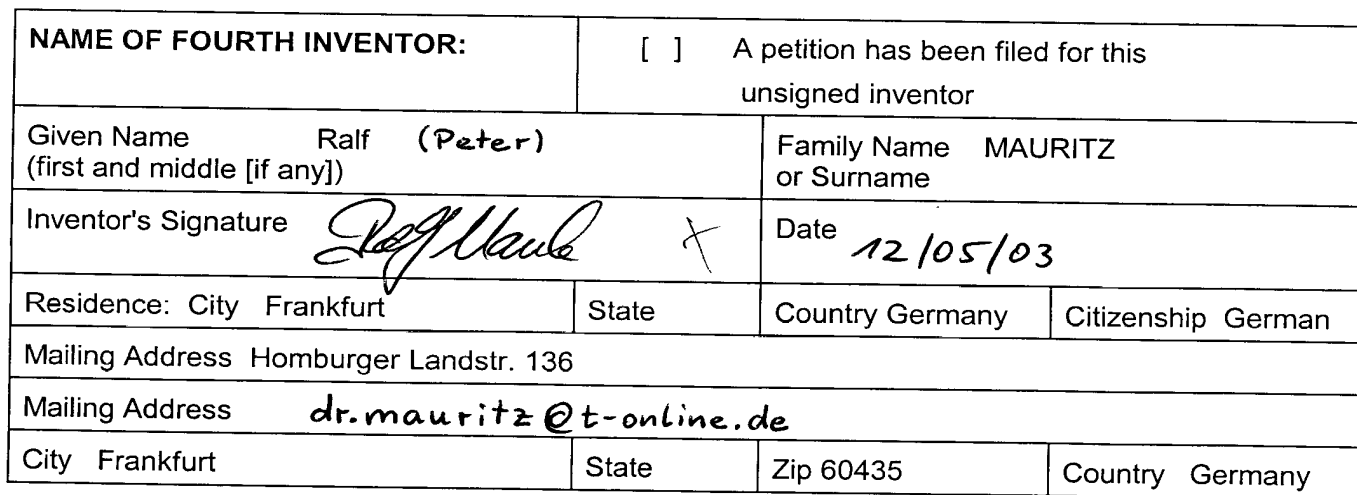 NAME OF FOURTH INVENTOR: [ ] A petition has been filed for this
unsigned inventor
Given Name Ralf (Peter) Family Name MAURITZ
(first and middle [if any]) or Surname
Inventor's Signature Date 12/05/03
Residence: City Frankfurt State Country Germany Citizenship German
Mailing Address Homburger Landstr. 136
Mailing Address dr.mauritz@t-online.de
City Frankfurt State Zip 60435 Country Germany